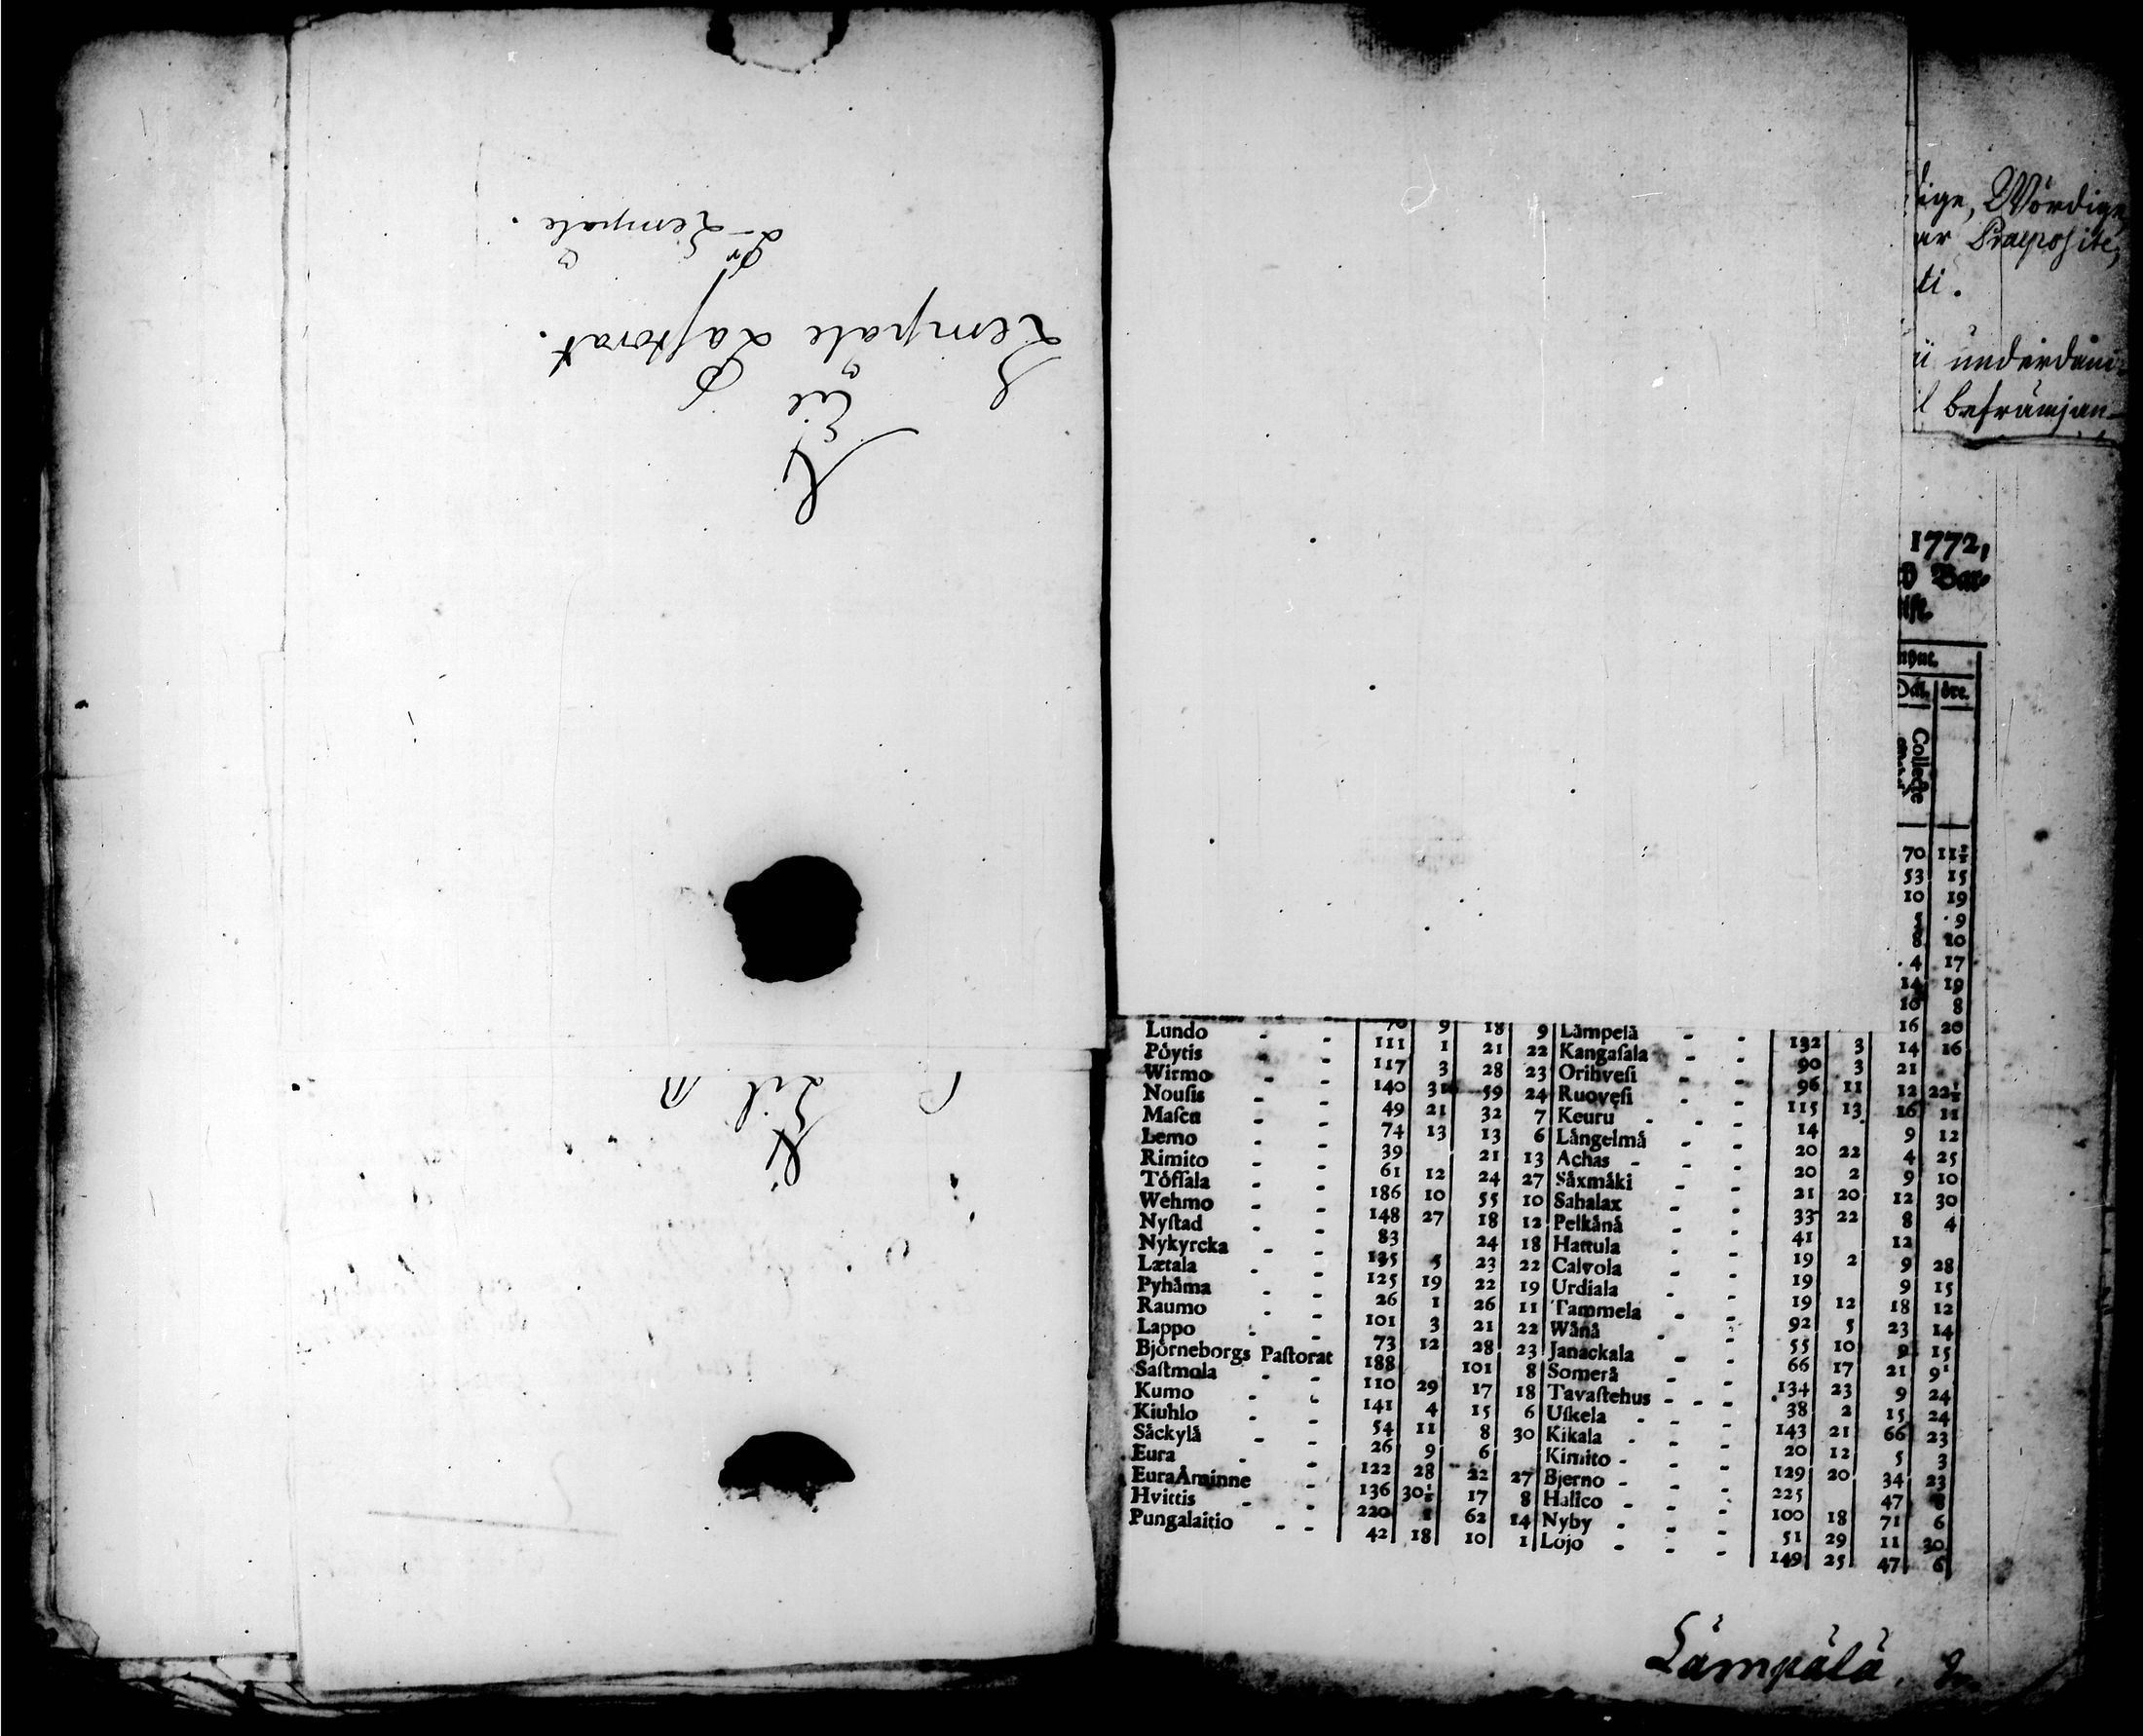 Til
Lempäle Pastorat.
Pr
Lempäle.
Til
ige, Wördige
ar Præposite,
ti.
underdåni-
befrämjan-
1772,
mynt.
Dal. öre.
Collecte
70 11½
53 15
10 19
5 9
8 10
4 17
14 19
10 8
16 20
70 9 18 9 Låmpelå - - 132 3 14 16
Lundo - - 111 1 21 22 Kangaſala - - 90 3 21
Pöytis - - 117 3 28 23 Orihveſi - - 96 11 12 22½
Wirmo - - 140 31 59 24 Ruoveſi - - 115 13 16 11
Nouſis - - 49 21 32 7 Keuru - - - 14 9 12
Maſcu - - 74 13 13 6 Långelmå - - 20 22 4 25
Lemo - - 39 21 13 Achas - - - 20 2 9 10
Rimito - - 61 12 24 27 Såxmåki - - 21 20 12 30
Töffala - - 186 10 55 10 Sahalax - - 33 22 8 4
Wehmo - - 148 27 18 12 Pelkånå - - 41 12
Nyſtad - - 83 24 18 Hattula - - 19 2 9 28
Nykyrcka - - 135 5 23 22 Calvola - - 19 9 15
Lætala - - 125 19 22 19 Urdiala - - 19 12 18 12
Pyhåma - - 26 1 26 11 Tammela - - 92 5 23 14
Raumo - - 101 3 21 22 Wånå - - 55 10 9 15
Lappo - - 73 12 28 23 Janackala - - 66 17 21 9
Björneborgs Paſtorat 188 101 8 Somerå - - 134 23 9 24
Saſtmola - - 110 29 17 18 Tavaſtehus - - - 38 2 15 24
Kumo - - 141 4 15 6 Uſkela - - - 143 21 66 23
Kiuhlo - - 54 11 8 30 Kikala - - - 20 12 5 3
Såckylå - - 26 9 6 Kimito - - - 129 20 34 23
Eura - - 122 28 22 27 Bjerno - - - 225 47 8
EuraÅminne - 136 30½ 17 8 Halico - - - 100 18 71 6
Hvittis - - 220 1 62 14 Nyby - - - 51 29 11 30
Pungalaitio - - 42 18 10 1 Lojo - - - 149 25 47 6
Lämpälä.